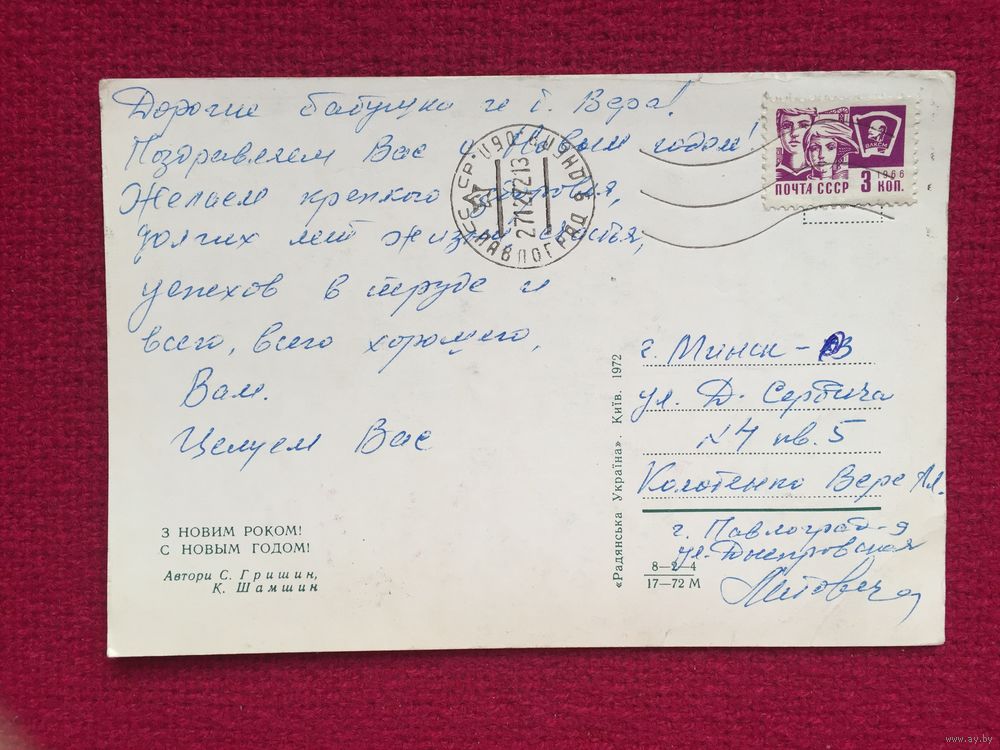 Дорогие бабушка и т. Вера!
Поздравляем Вас с Новым годом!
Желаем крепкого здоровья,
долгих лет жизни, счастья,
успехов в труде и
всего, всего хорошего,
Вам.
Целуем Вас
З НОВИМ РОКОМ!
С НОВЫМ ГОДОМ!
Автори С. Гришин,
К. Шамшин
ПАВЛОГРАД 9
271272 13
ПОЧТА СССР 3 КОП.
1966
ВЛКСМ
«Радянська Україна». Київ. 1972
г. Минск-
ул. Д. Сердича
4 кв. 5
Колотенко Вере Ал.
г. Павлоград-9
ул. Днепровская
8—2—4
17—72 М
www.ay.by